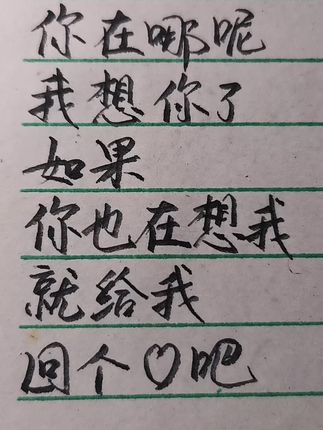 你在哪呢
我想你了
如果
你也在想我
就给我
回个♡吧